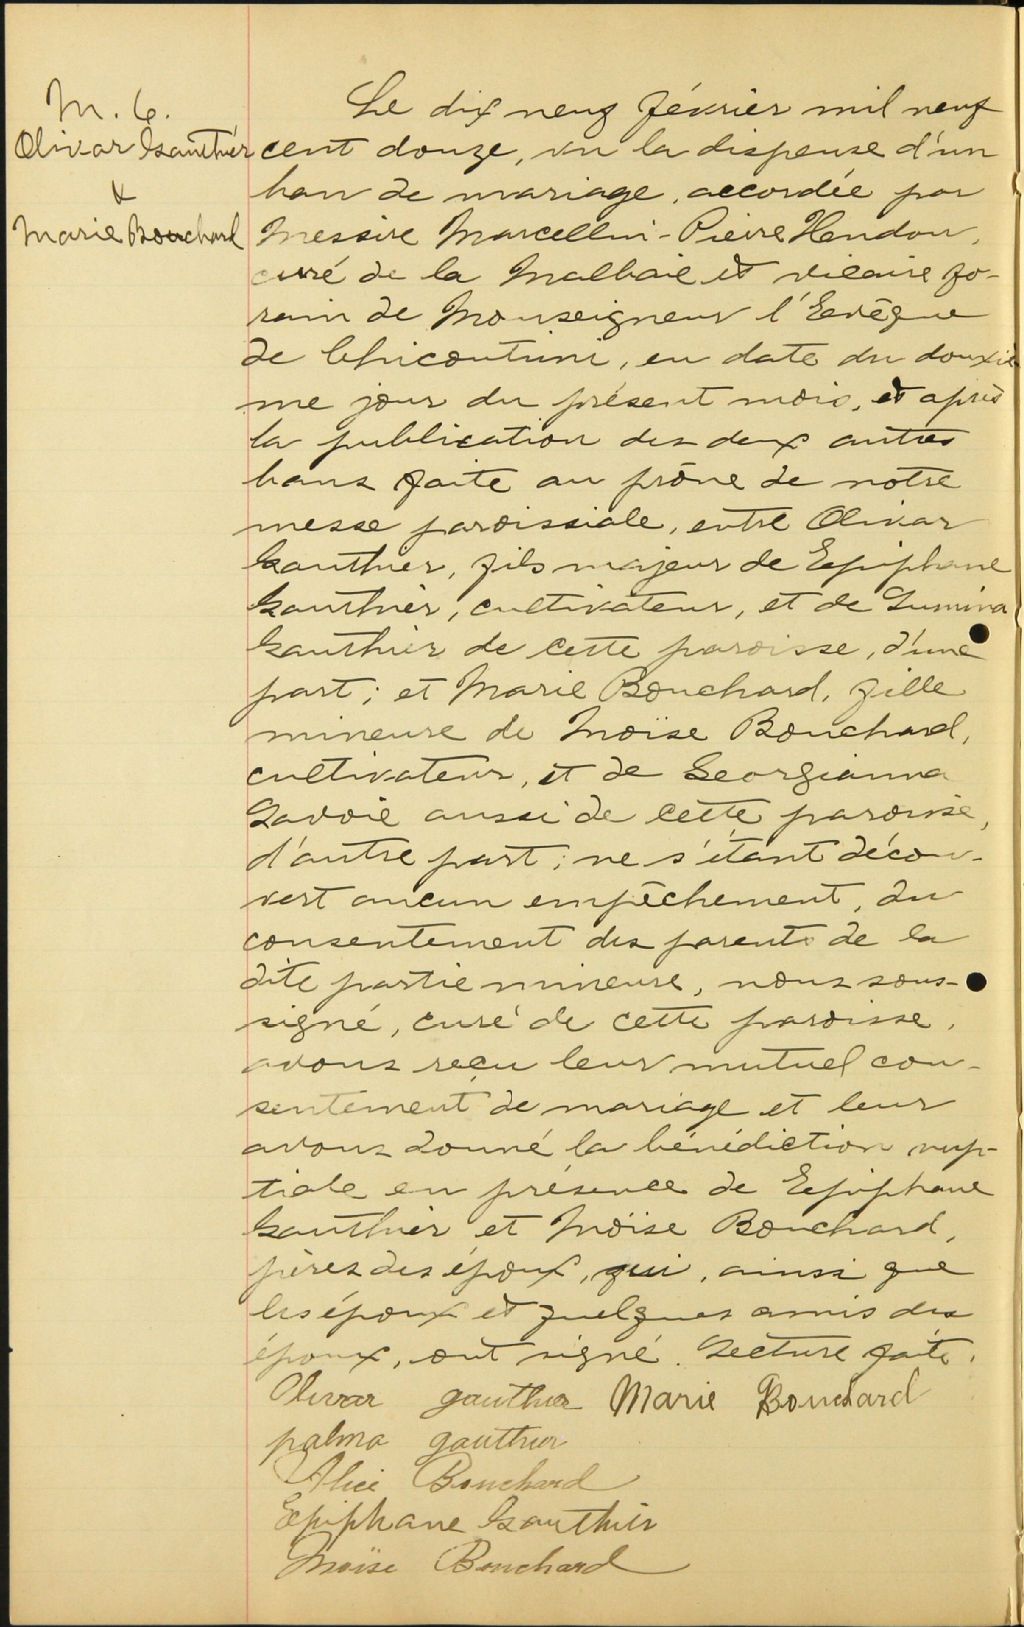 M. 6.
Olivar Gauthier
&
Marie Bouchard
Le dix neuf février mil neuf
cent douze, vu la dispense d'un
ban de mariage, accordée par
Messire Marcellin-Pierre Hudon,
curé de la Malbaie et vicaire fo-
rain de Monseigneur l'Evêque
de Chicoutimi, en date du douxiè
me jour du présent mois, et après
la publication des deux autres
bans faite au prône de notre
messe paroissiale, entre Olivar
Gauthier, fils majeur de Epiphane
Gauthier, cultivateur, et de Lumina
Gauthier de cette paroisse, d'une
part; et Marie Bouchard, fille
mineure de Moïse Bouchard,
cultivateur, et de Georgianna
Savoie aussi de cette paroisse,
d'autre part; ne s'étant décou-
vert aucun empêchement, du
consentement des parents de la
dite partie mineure, nous sous-
signé, curé de cette paroisse,
avons reçu leur mutuel con-
sentement de mariage et leur
avons donné la bénédiction nup-
tiale en présence de Epiphane
Gauthier et Moïse Bouchard,
pères des époux, qui, ainsi que
les époux et quelques amis des
époux, ont signé. Lecture faite.
Olivar gauthier Marie Bouchard
palma gauthier
Alice Bouchard
Epiphane Gauthier
Moïse Bouchard